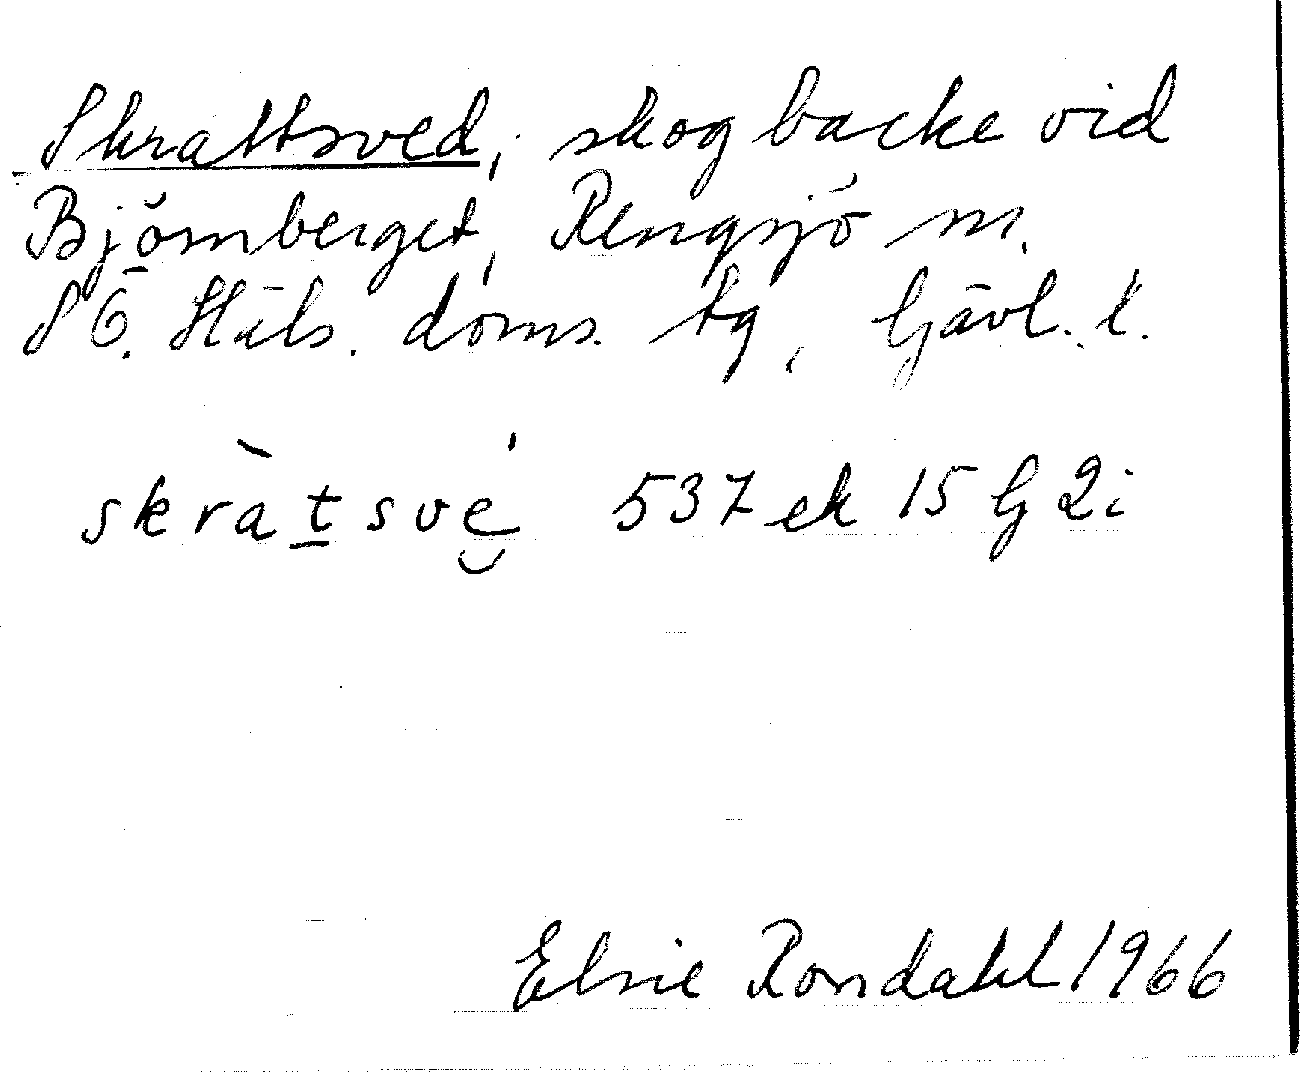 Skrattsved, skogbacke vid
Björnberget, Rengsjö sn.
SÖ. Häls. doms. tg, Gävl. l.
skràt̲své̮ 537 ek 15 G 2i
Elsie Rondahl 1966